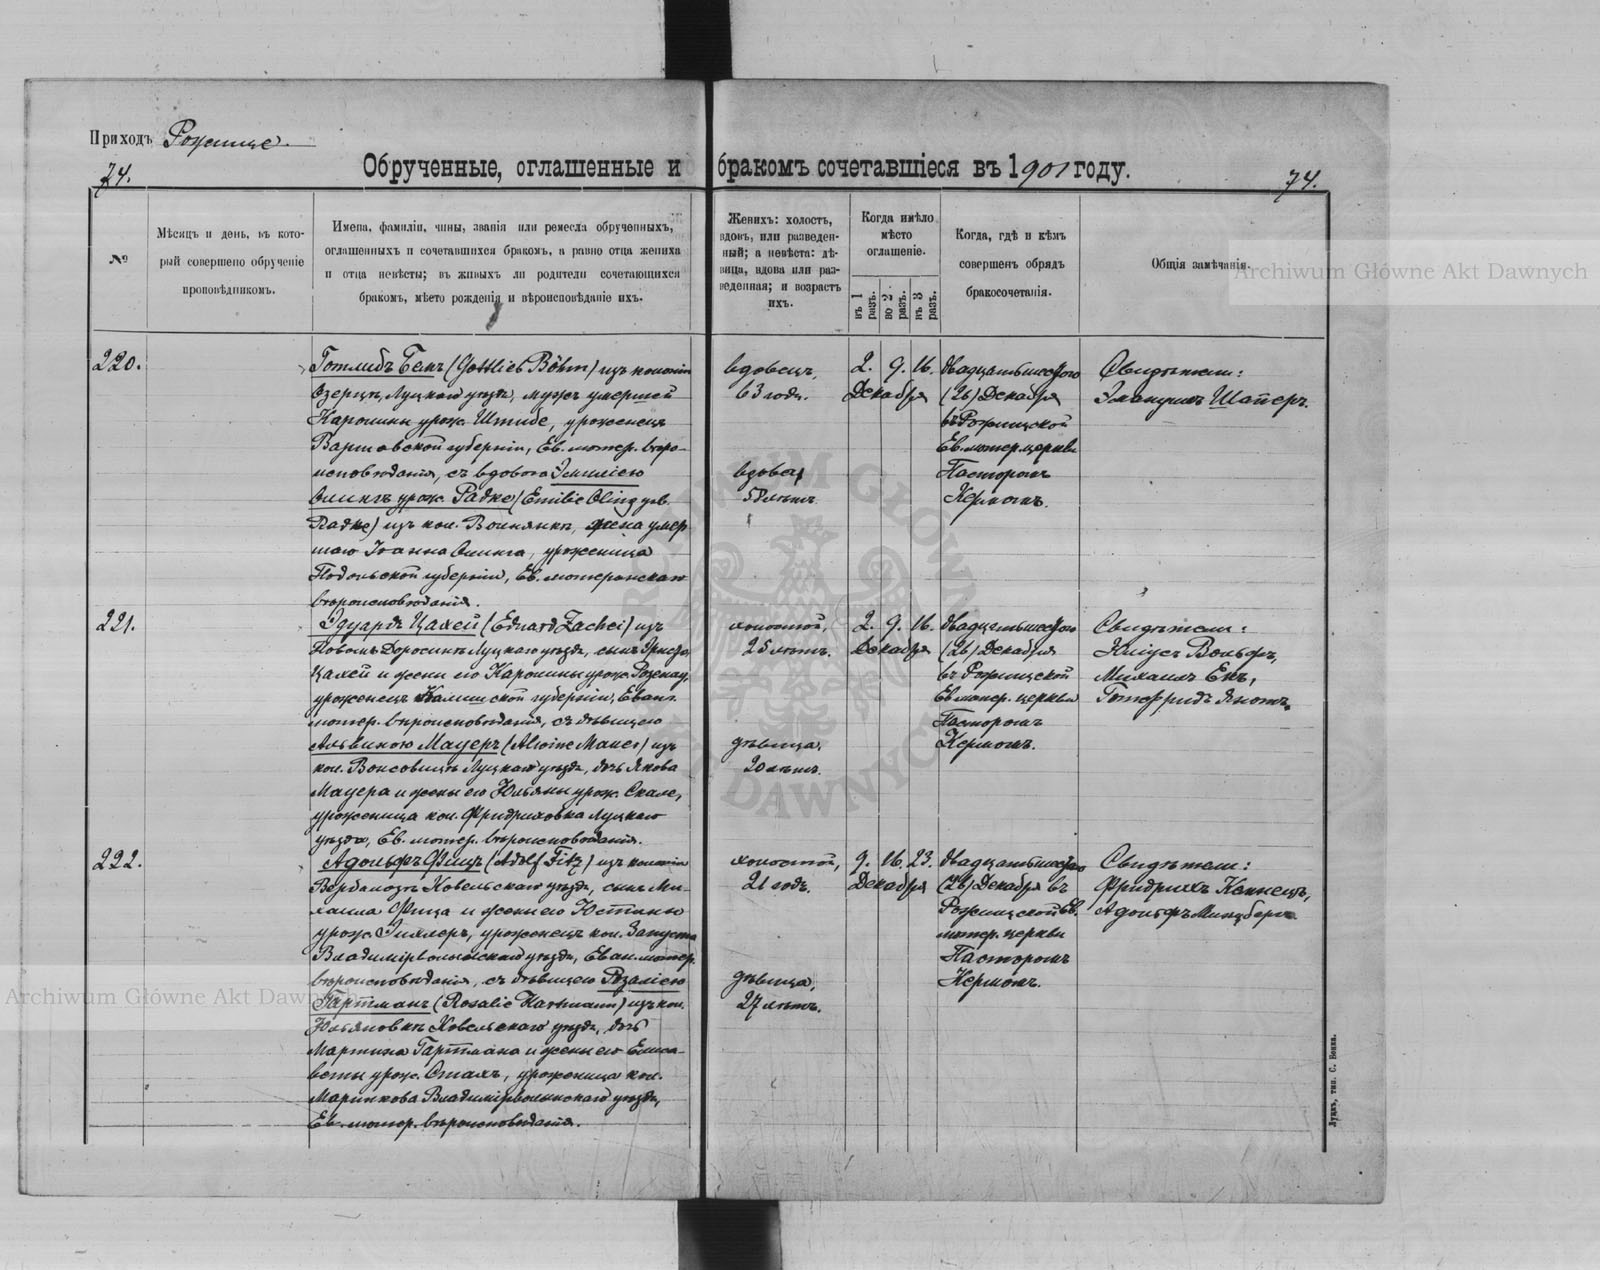 Приходъ Рожище.
74.
Обрученные, оглашенные и бракомъ сочетавшіеся въ 1901 году.
74.
№
Мѣсяцъ и день, въ кото-
рый совершено обрученіе
проповѣдникомъ.
Имена, фамиліи, чины, званія или ремесла обрученныхъ,
оглашенныхъ и сочетавшихся бракомъ, а равно отца жениха
и отца невѣсты; въ живыхъ ли родители сочетающихся
бракомъ, мѣсто рожденія и вѣроисповѣданіе ихъ.
Женихъ: холостъ,
вдовъ, или разведен-
ный; а невѣста: дѣ-
вица, вдова или раз-
веденная; и возрастъ
ихъ.
Когда имѣло
мѣсто
оглашеніе.
въ 1 разъ.
во 2 разъ.
въ 3 разъ.
Когда, гдѣ и кѣмъ
совершенъ обрядъ
бракосочетанія.
Общія замѣчанія.
220.
Готлибъ Бемъ (Gottlieb Böhm) изъ колоніи
Озерцъ, Луцкаго уѣзда, мужъ умершей
Каролины урож. Штибе, уроженецъ
Варшавской губерніи, Ев. лютер. вѣро-
исповѣданія, съ вдовою Эмиліею
Олингъ урож. Радке (Emilie Oling geb.
Radke) изъ кол. Волнянкъ, жена умер-
шаго Іоанна Олинга, уроженица
Подольской губерніи, Ев. лютеранскаго
вѣроисповѣданія.
вдовецъ,
63 года.
вдова,
лѣтъ.
2. 9. 16.
Декабря
двадцатьшестого
(26) Декабря
въ Рожищской
Ев. лютер. церкви
Пасторомъ
Кермомъ.
Свидѣтели:
Эмануилъ Шаперъ.
221.
Эдуардъ Цахей (Eduard Zachei) изъ
Новомъ Доросинѣ Луцкаго уѣзда, сынъ
Цахей и жены его Каролины урож. Розенау,
уроженецъ Калишской губерніи, Еванг.
лютер. вѣроисповѣданія, съ дѣвицею
Альвиною Мауеръ (Alwine Mauer) изъ
кол. Луцкаго уѣзда, дочь Якова
Мауера и жены его Юльяны урож. Скале,
уроженица кол. Фридриховка Луцкаго
уѣзда, Ев. лютер. вѣроисповѣданія.
холостой,
25 лѣтъ.
дѣвица,
20 лѣтъ.
2. 9. 16.
Декабря
двадцатьшестого
(26) Декабря
въ Рожищской
Ев. лютер. церкви
Пасторомъ
Кермомъ.
Свидѣтели:
Юліусъ Вольфъ,
Михаилъ Екъ,
Готфридъ
222.
Адольфъ Фицъ (Adolf Fitz) изъ колоніи
Вербамозъ Ковельскаго уѣзда, сынъ Ми-
хаила Фица и жены его Юстины
урож. уроженецъ кол. Запуста
Владимірволынскаго уѣзда, Еван. лютер.
вѣроисповѣданія, съ дѣвицею Розаліею
Гартманъ (Rosalie Hartmann) изъ кол.
Юльяновкъ Ковельскаго уѣзда, дочь
Мартина Гартмана и жены его Елиса-
веты урож. Стахъ, уроженица кол.
Маринкова Владимірволынскаго уѣзда,
Ев. лютер. вѣроисповѣданія.
холостой,
21 годъ.
дѣвица,
27 лѣтъ.
9. 16. 23.
Декабря
двадцатьшестого
(26) Декабря въ
Рожищской Ев.
лютер. церкви
Пасторомъ
Кермомъ.
Свидѣтели:
Фридрихъ
Адольфъ Минцберг
Луцкъ, тип. С. Бонка.
Archiwum Główne Akt Dawnych
Archiwum Główne Akt Dawnych